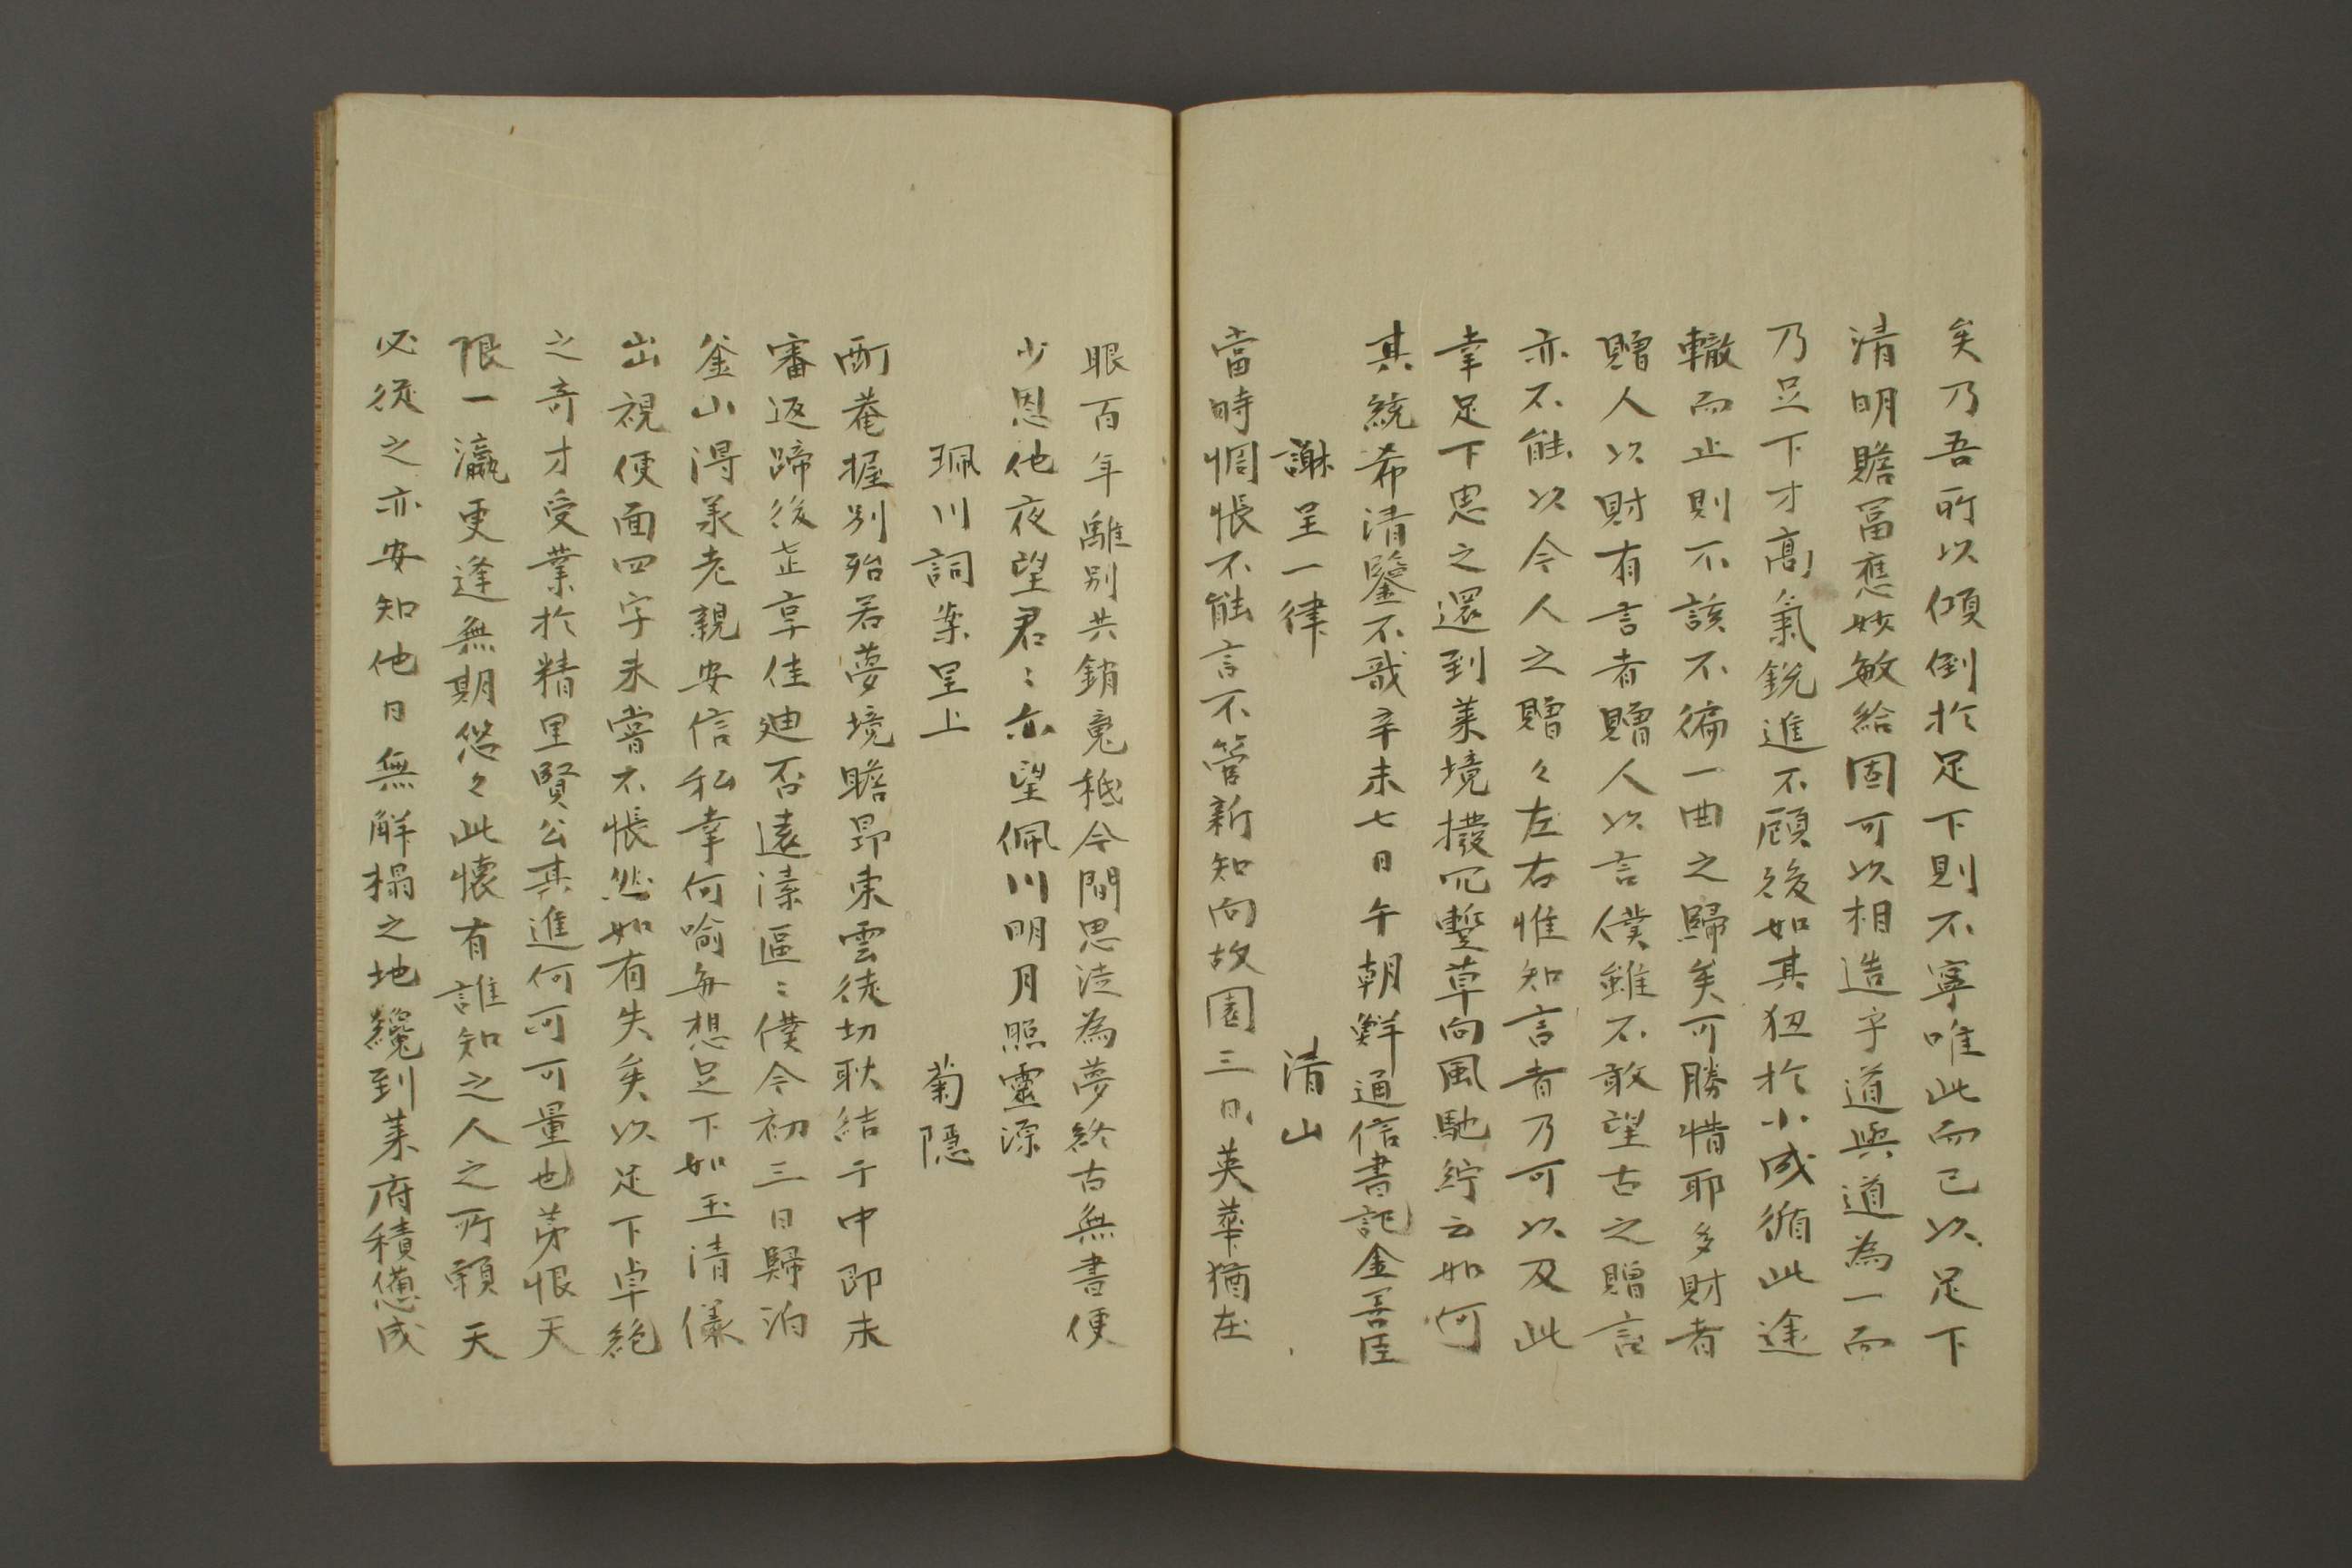 矣乃吾所以傾倒於足下則不寧唯此而已以足下
清明贍富應妙敏給固可以相造乎道與道為一而
乃足下才高氣銳進不顧後如其狃於小成循此途
轍而止則不該不徧一曲之歸矣可勝惜耶多財者
贈人以財有言者贈人以言僕雖不敢望古之贈言
亦不能以今人之贈々左右惟知言者乃可以及此
幸足下思之還到萊境撥冗蹔草向風馳紵云如何
其統希清鑒不戢辛未七日午朝鮮通信書記金善臣
謝呈一律　清山
當時惆悵不能言不管新知向故園三日英華猶在
眼百年離別共銷䰟秪今間思涟為夢終古無書便
少恩他夜望君〻亦望佩川明月照靈源
珮川詞案呈上　菊隱
酊菴握別殆若夢境瞻昂東雲徒切耿結于中即未
審返蹄後㱏享佳迪否遠溸區〻僕今初三日歸泊
釜山得承老親安信私幸何喻每想足下如玉清儀
出視便面四字未嘗不悵然如有失矣以足下卓絶
之奇才受業於精里賢公其進何可可量也苐恨天
限一瀛更逢無期悠々此懷有誰知之人之所願天
必從之亦安知他日無解榻之地纔到萊府積憊成